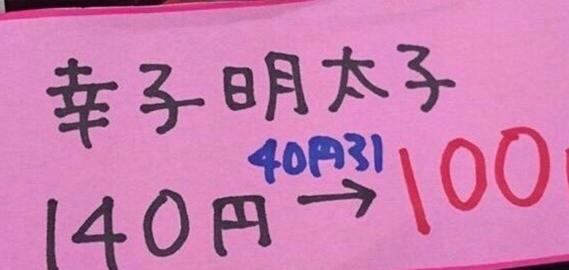 幸子明太子
40円引
140円→100